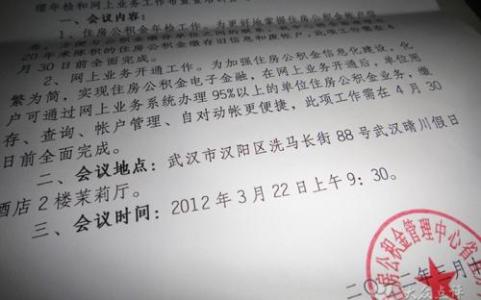 理年检和网上业务工作布置
一、会议内容：
1、住房公积金年检工作。为更好地掌握住房公积金帐户
20年来原积的住房公积金缴存旧信息和废帐户，此项工作需在4
月30日前全面完成。
2、网上业务开通工作。为加强住房公积金信息化建设，化
繁为简，实现住房公积金电子金融，在网上业务开通后，单位用
户可通过网上业务系统办理95%以上的单位住房公积金业务，缴
存、查询、帐户管理、自对动帐更便捷，此项工作需在4月30
日前全面完成。
二、会议地点：武汉市汉阳区洗马长街88号武汉晴川假日
酒店2楼茉莉厅。
三、会议时间：2012年3月22日上午9：30。
住房公积金管理中心省
二〇一二年三月十
大众点评